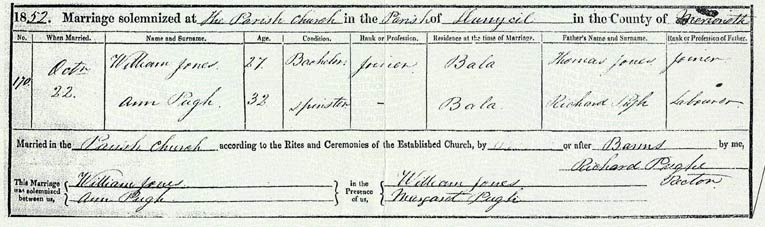 1852. Marriage solemnized at the Parish Church in the Parish of Llanycil in the County of Merioneth
No. When Married. Name and Surname. Age. Condition. Rank or Profession. Residence at the time of Marriage. Father's Name and Surname. Rank or Profession of Father.
170. Octr 22. William Jones 27. Bachelor Joiner. Bala Thomas Jones Joiner
Ann Pugh 32 Spinster – Bala Richard Pugh Labourer
Married in the Parish Church according to the Rites and Ceremonies of the Established Church, by or after Banns by me,
Richard Pughe
Rector
This Marriage was solemnized between us, William Jones Ann Pugh in the Presence of us, William Jones Margaret Pugh